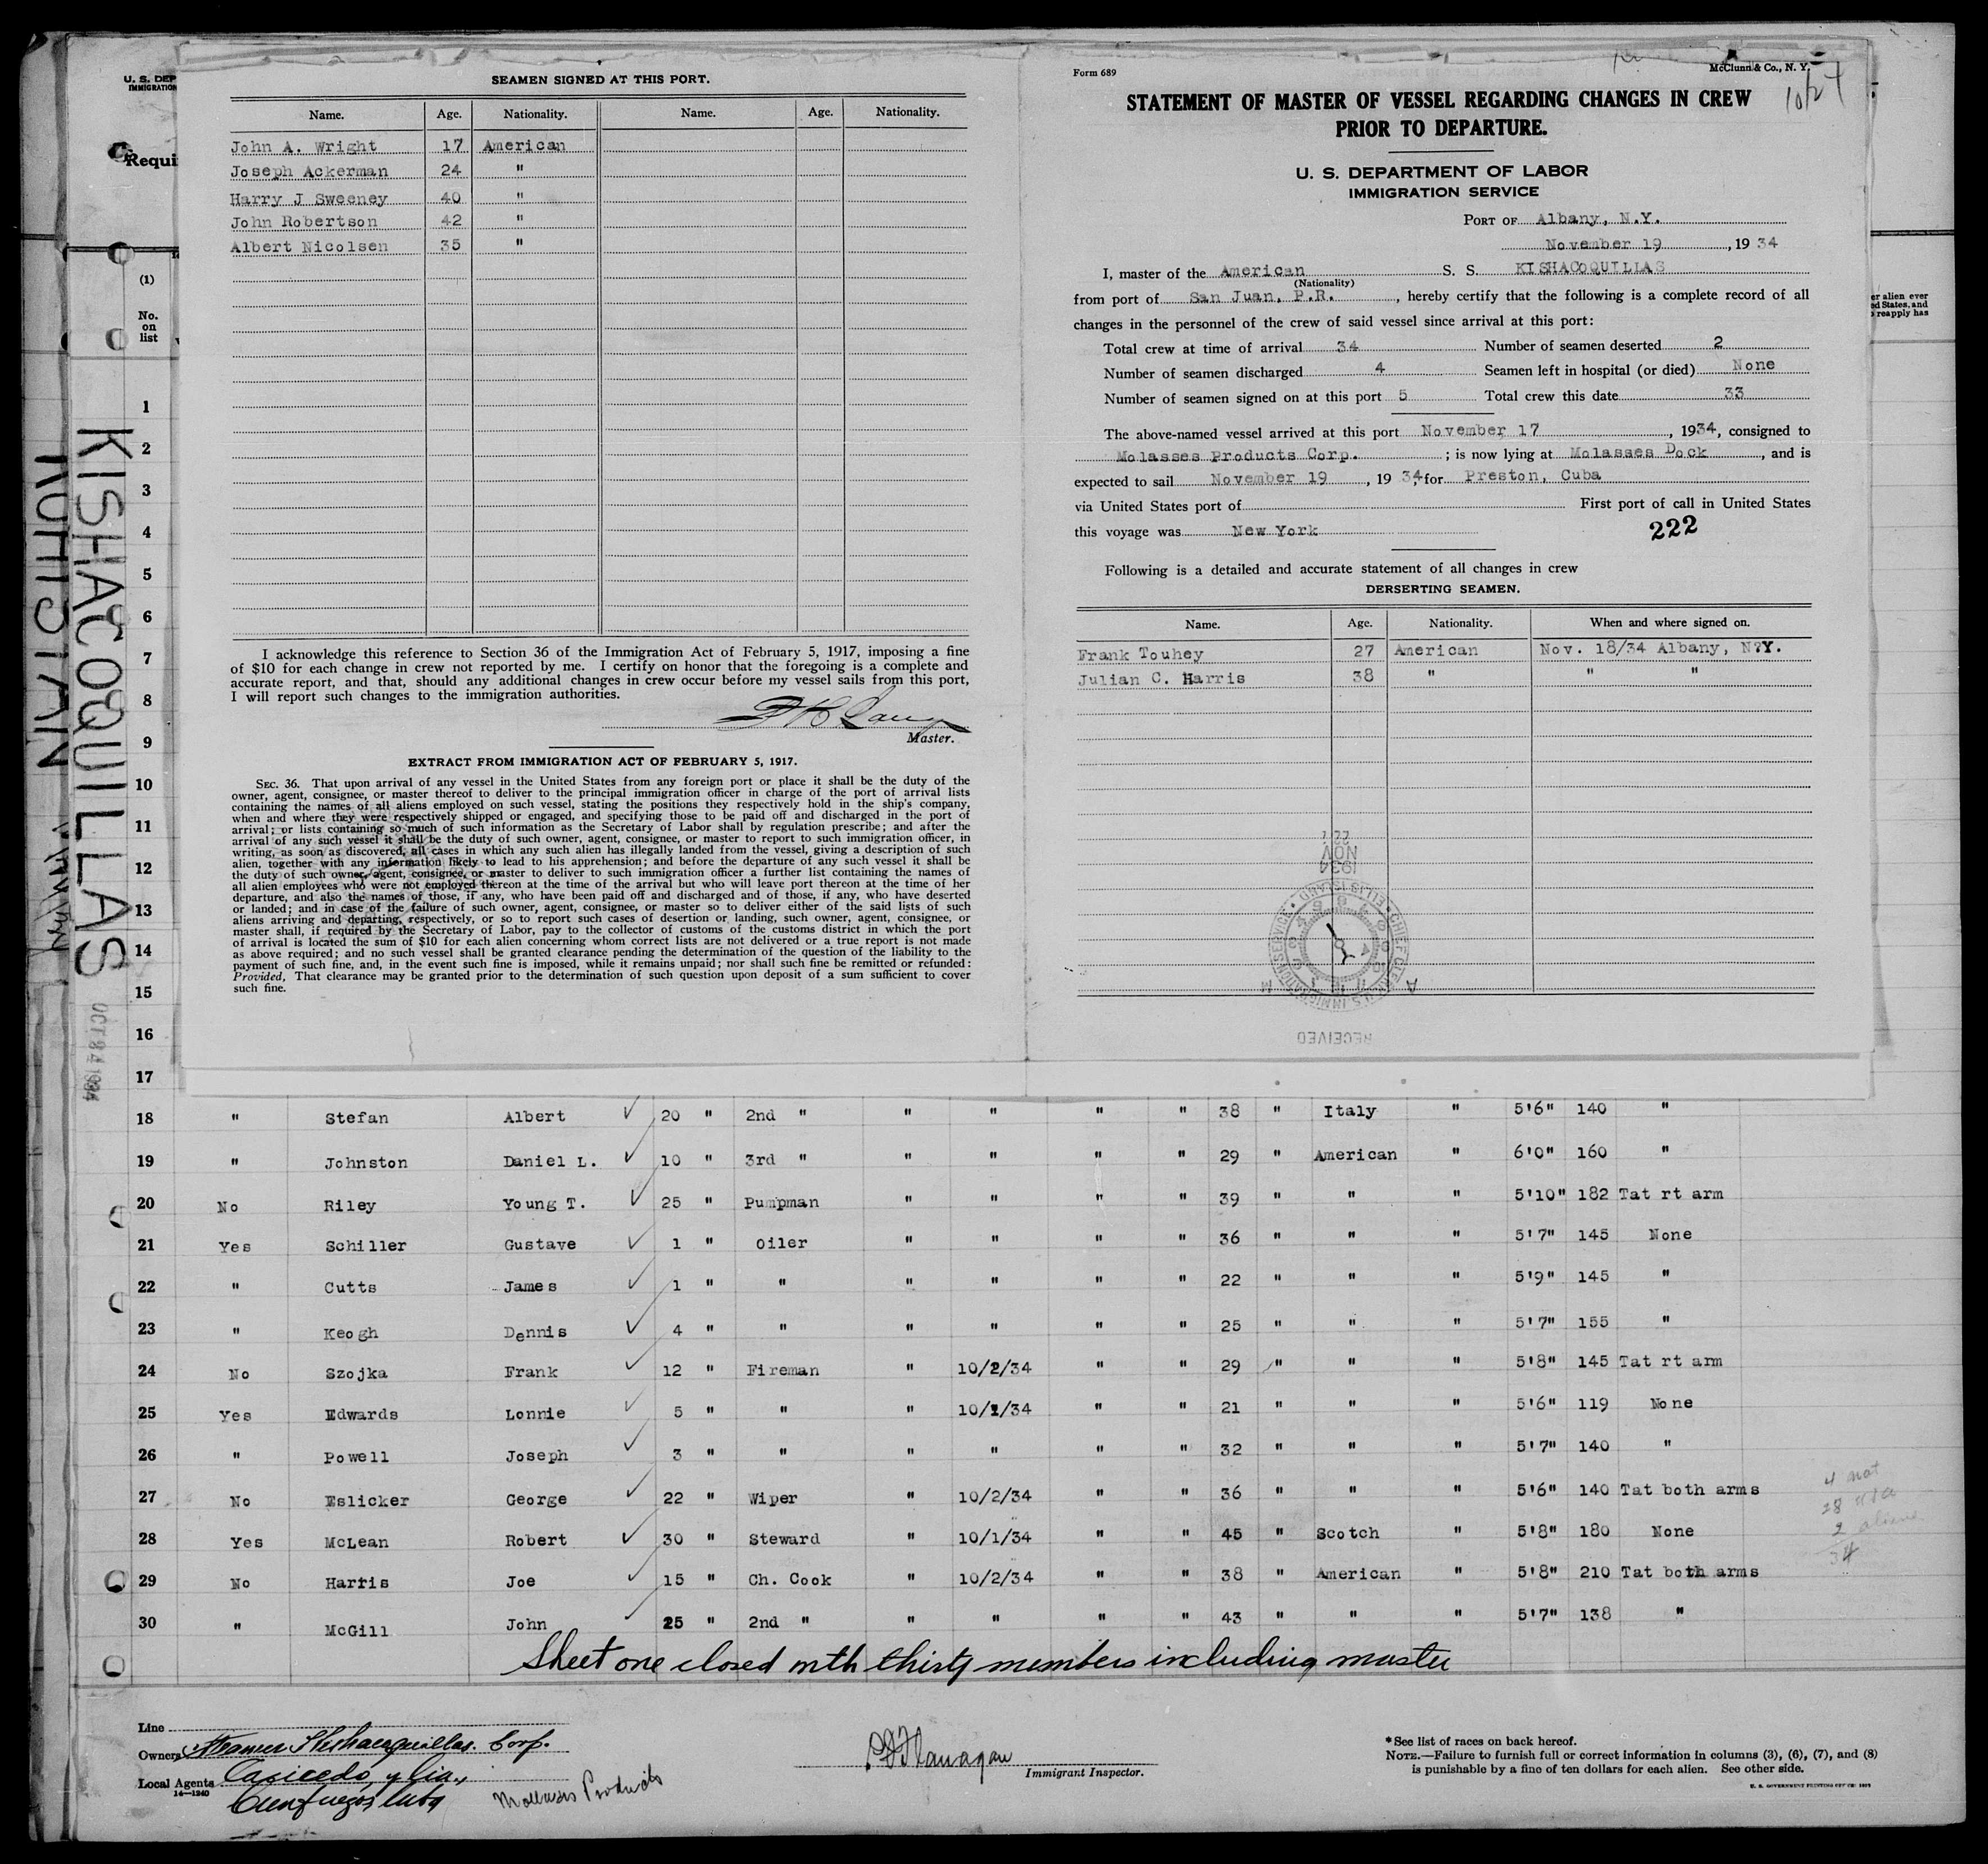 U. S. DEP
IMMIGRATION
Requi
(1)
No.
on
list
KISHACOQUILLAS
SEAMEN SIGNED AT THIS PORT.
Name. Age. Nationality. Name. Age. Nationality.
John A. Wright 17 American
Joseph Ackerman 24 "
Harry J Sweeney 40 "
John Robertson 42 "
Albert Nicolsen 35 "
I acknowledge this reference to Section 36 of the Immigration Act of February 5, 1917, imposing a fine
of $10 for each change in crew not reported by me. I certify on honor that the foregoing is a complete and
accurate report, and that, should any additional changes in crew occur before my vessel sails from this port,
I will report such changes to the immigration authorities.
Master.
EXTRACT FROM IMMIGRATION ACT OF FEBRUARY 5, 1917.
SEC. 36. That upon arrival of any vessel in the United States from any foreign port or place it shall be the duty of the
owner, agent, consignee, or master thereof to deliver to the principal immigration officer in charge of the port of arrival lists
containing the names of all aliens employed on such vessel, stating the positions they respectively hold in the ship's company,
when and where they were respectively shipped or engaged, and specifying those to be paid off and discharged in the port of
arrival; or lists containing so much of such information as the Secretary of Labor shall by regulation prescribe; and after the
arrival of any such vessel it shall be the duty of such owner, agent, consignee, or master to report to such immigration officer, in
writing, as soon as discovered, all cases in which any such alien has illegally landed from the vessel, giving a description of such
alien, together with any information likely to lead to his apprehension; and before the departure of any such vessel it shall be
the duty of such owner, agent, consignee, or master to deliver to such immigration officer a further list containing the names of
all alien employees who were not employed thereon at the time of the arrival but who will leave port thereon at the time of her
departure, and also the names of those, if any, who have been paid off and discharged and of those, if any, who have deserted
or landed; and in case of the failure of such owner, agent, consignee, or master so to deliver either of the said lists of such
aliens arriving and departing, respectively, or so to report such cases of desertion or landing, such owner, agent, consignee, or
master shall, if required by the Secretary of Labor, pay to the collector of customs of the customs district in which the port
of arrival is located the sum of $10 for each alien concerning whom correct lists are not delivered or a true report is not made
as above required; and no such vessel shall be granted clearance pending the determination of the question of the liability to the
payment of such fine, and, in the event such fine is imposed, while it remains unpaid; nor shall such fine be remitted or refunded:
Provided, That clearance may be granted prior to the determination of such question upon deposit of a sum sufficient to cover
such fine.
Form 689
McClunn & Co., N. Y.
STATEMENT OF MASTER OF VESSEL REGARDING CHANGES IN CREW
PRIOR TO DEPARTURE.
U. S. DEPARTMENT OF LABOR
IMMIGRATION SERVICE
PORT OF Albany, N.Y.
November 19, 19 34
I, master of the American S. S. KISHACOQUILLAS
(Nationality)
from port of San Juan, P.R., hereby certify that the following is a complete record of all
changes in the personnel of the crew of said vessel since arrival at this port:
Total crew at time of arrival 34 Number of seamen deserted 2
Number of seamen discharged 4 Seamen left in hospital (or died) None
Number of seamen signed on at this port 5 Total crew this date 33
The above-named vessel arrived at this port November 17, 1934, consigned to
Molasses Products Corp. ; is now lying at Molasses Dock, and is
expected to sail November 19, 19 34, for Preston, Cuba
via United States port of First port of call in United States
this voyage was New York
222
Following is a detailed and accurate statement of all changes in crew
DERSERTING SEAMEN.
Name. Age. Nationality. When and where signed on.
Frank Touhey 27 American Nov. 18/34 Albany, N.Y.
Julian C. Harris 38 " " "
1934
NOV
RECEIVED
er alien ever
ed States, and
reapply has
1
2
3
4
5
6
7
8
9
10
11
12
13
14
15
16
17
18 " Stefan Albert 20 " 2nd " " " " " 38 " Italy " 5'6" 140 "
19 " Johnston Daniel L. 10 " 3rd " " " " " 29 " American " 6'0" 160 "
20 No Riley Young T. 25 " Pumpman " " " " 39 " " " 5'10" 182 Tat rt arm
21 Yes Schiller Gustave 1 " Oiler " " " " 36 " " " 5'7" 145 None
22 " Cutts James 1 " " " " " " 22 " " " 5'9" 145 "
23 " Keogh Dennis 4 " " " " " " 25 " " " 5'7" 155 "
24 No Szojka Frank 12 " Fireman " 10/2/34 " " 29 " " " 5'8" 145 Tat rt arm
25 Yes Edwards Lonnie 5 " " " 10/1/34 " " 21 " " " 5'6" 119 None
26 " Powell Joseph 3 " " " " " " 32 " " " 5'7" 140 "
27 No Eslicker George 22 " Wiper " 10/2/34 " " 36 " " " 5'6" 140 Tat both arms
28 Yes McLean Robert 30 " Steward " 10/1/34 " " 45 " Scotch " 5'8" 180 None
29 No Harris Joe 15 " Ch. Cook " 10/2/34 " " 38 " American " 5'8" 210 Tat both arms
30 " McGill John 25 " 2nd " " " " " 43 " " " 5'7" 138 "
4 nat
28 usa
2 aliens
34
Sheet one closed with thirty members including master
Line
Owners Steamer Kishacoquillas Corp.
Local Agents Cacicedo y Cia.,
14—1240
Cienfuegos Cuba
Molasses Products
Flanagan
Immigrant Inspector.
*See list of races on back hereof.
NOTE.—Failure to furnish full or correct information in columns (3), (6), (7), and (8)
is punishable by a fine of ten dollars for each alien. See other side.